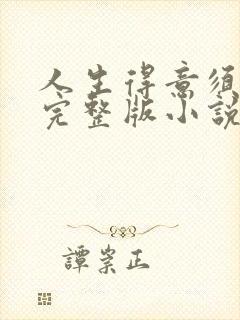 人生得意須
完整版小說
譚崇正